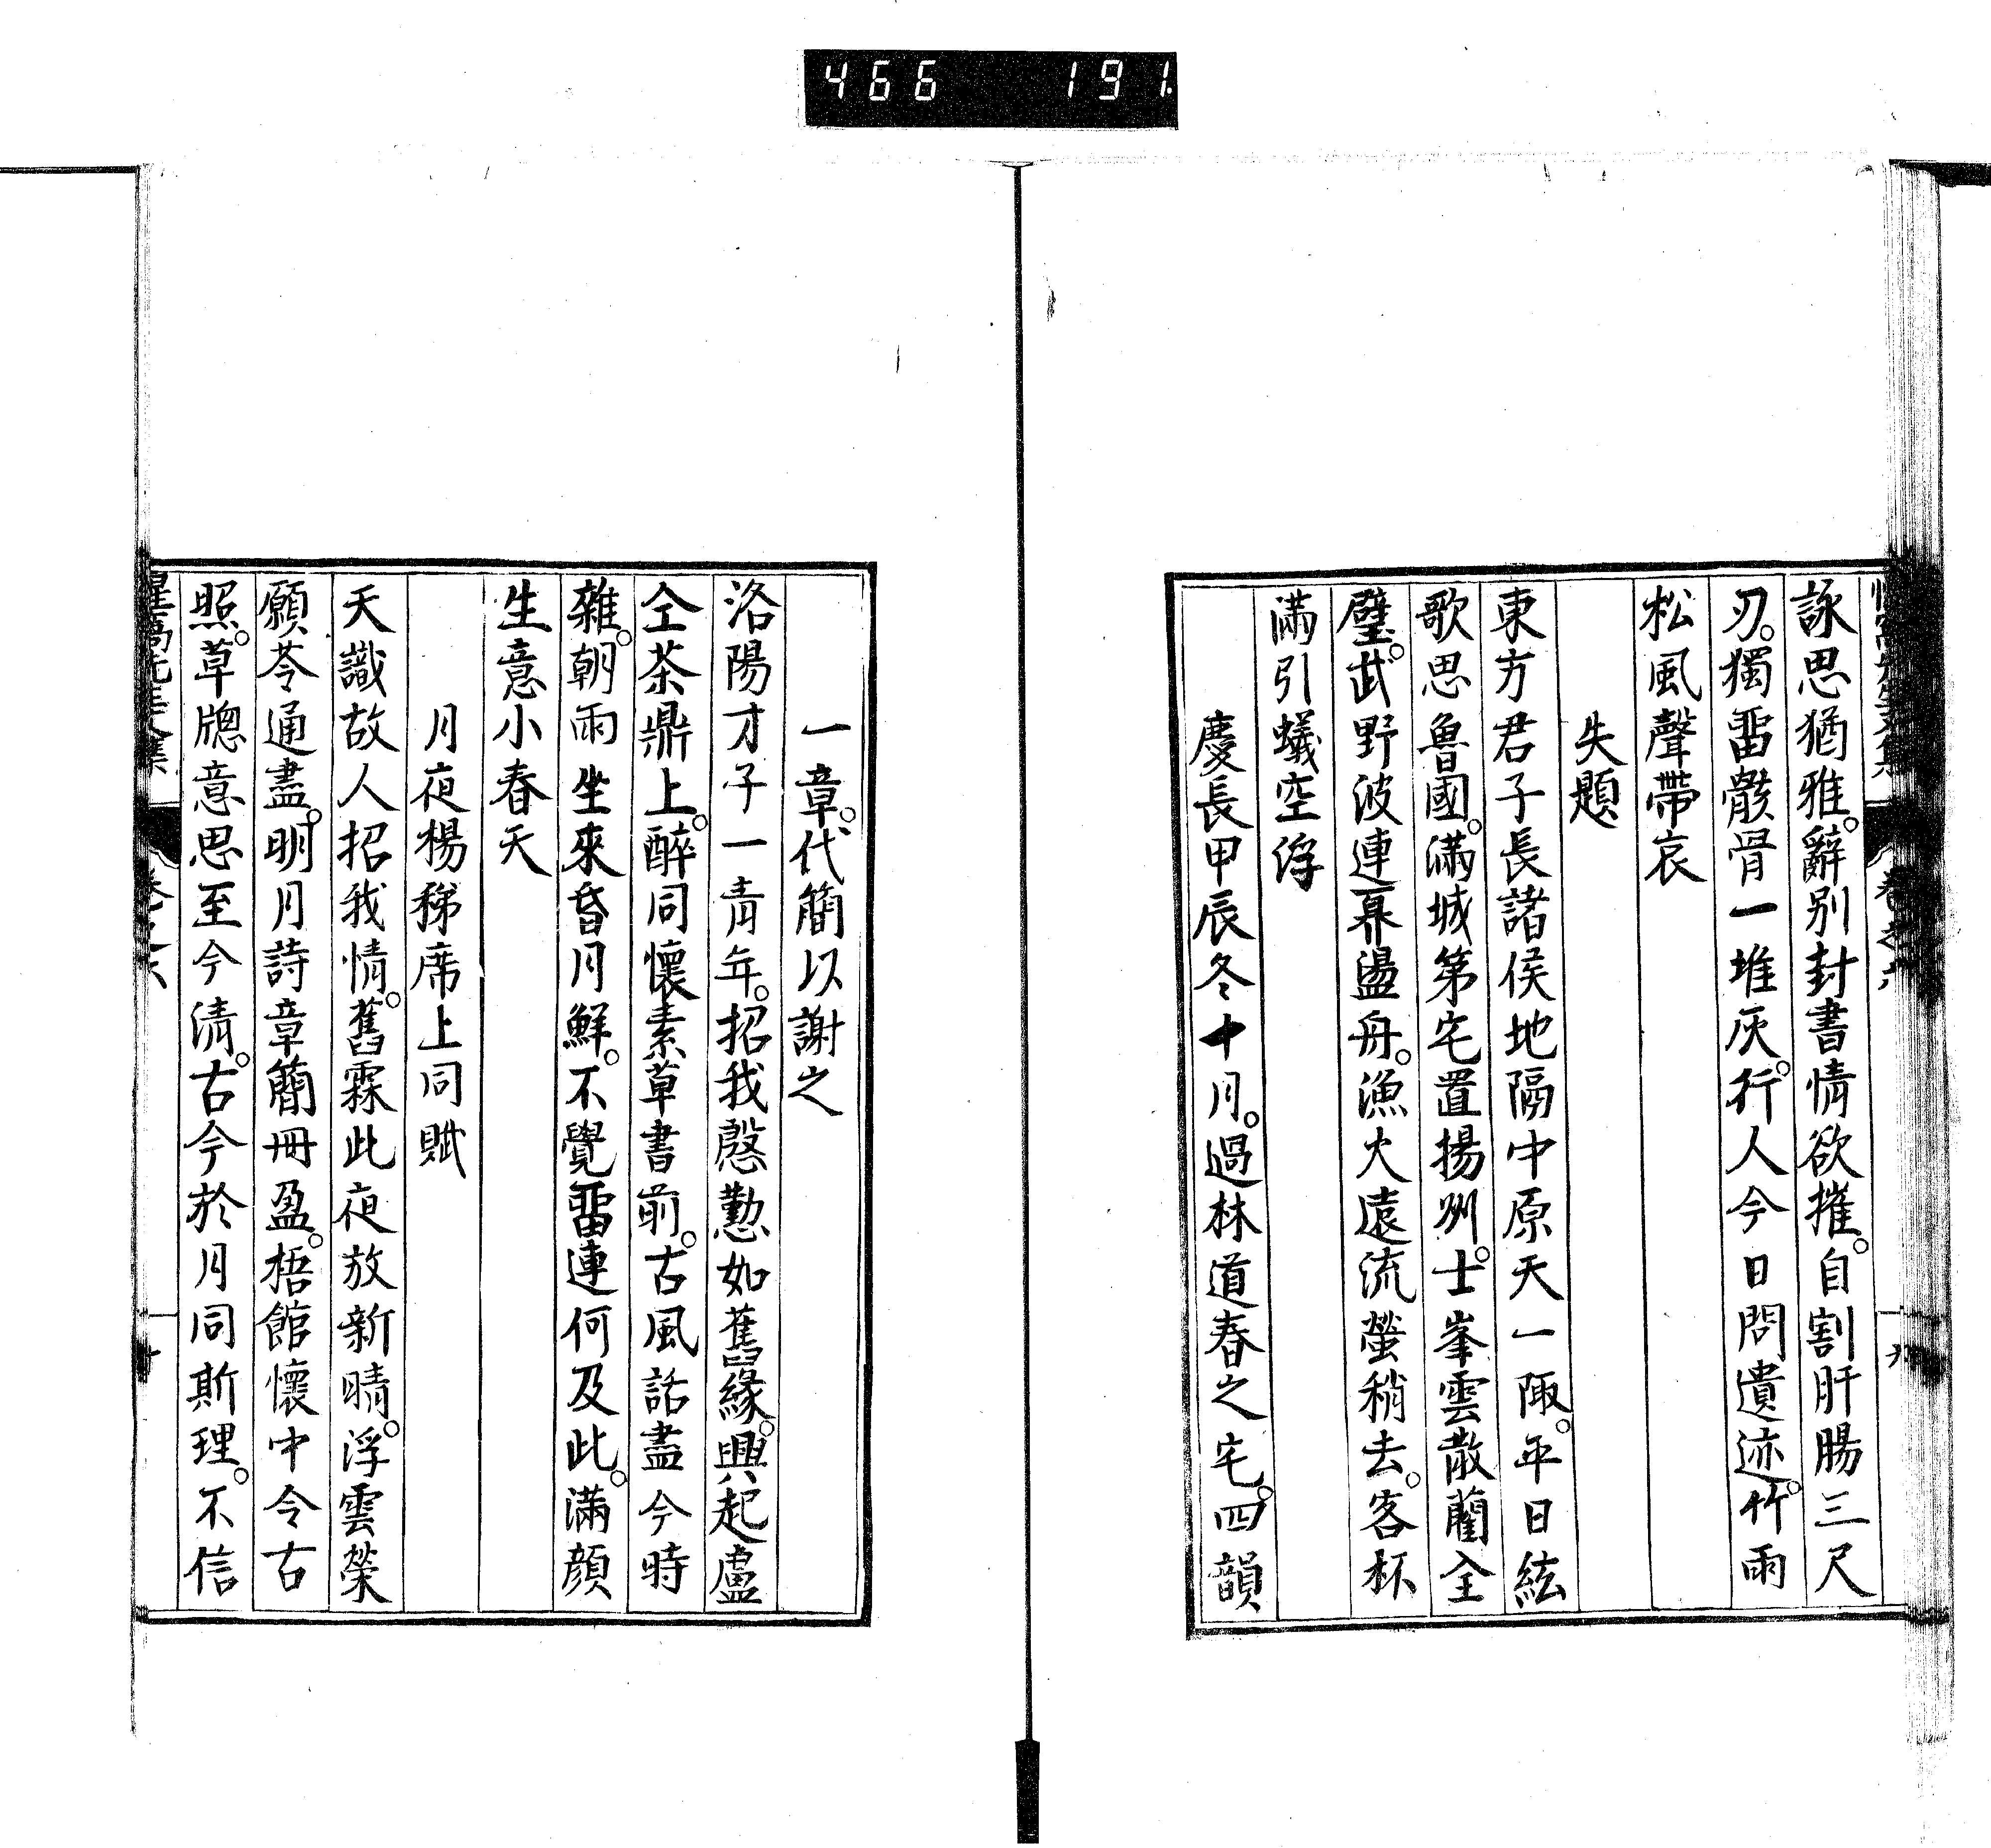 466 191
詠思猶雅。辭別封書情欲摧。自割肝腸三尺
刃。獨畱骸骨一堆灰。行人今日問遺迹。竹雨
松風聲帶哀
失題
東方君子長諸侯地隔中原天一陬。平日絃
歌思魯國。滿城第宅置揚州。士峯雲散藺全
璧。武野波連羃盪舟。漁火遠流螢稍去。客杯
滿引蟻空浮
慶長甲辰冬十月。過林道春之宅。四韻
一章。代簡以謝之
洛陽才子一青年。招我慇懃如舊緣。興起盧
仝茶鼎上。醉同懷素草書前。古風話盡今時
雜。朝雨坐來昏月鮮。不覺畱連何及此。滿顏
生意小春天
月夜楊稊席上同賦
天識故人招我情。舊霖此夜放新晴。浮雲榮
願苓通盡。明月詩章簡冊盈。梧館懷中今古
照。草牕意思至今清。古今於月同斯理。不信
惺窩先生文集 卷之六 十